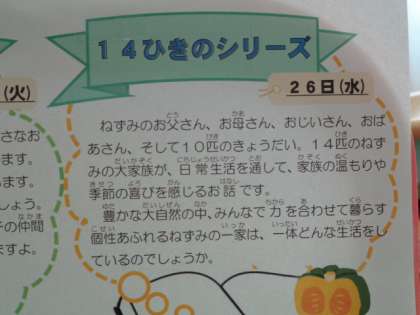 14ひきのシリーズ
(火)
26日(水)
さなお
ます。
ます。
しょう。
チの仲間
ますよ。
ねずみのお父さん、お母さん、おじいさん、おば
あさん、そして10匹のきょうだい。14匹のねず
みの大家族が、日常生活を通して、家族の温もりや
季節の喜びを感じるお話です。
豊かな大自然の中、みんなで力を合わせて暮らす
個性あふれるねずみの一家は、一体どんな生活をし
ているのでしょうか。